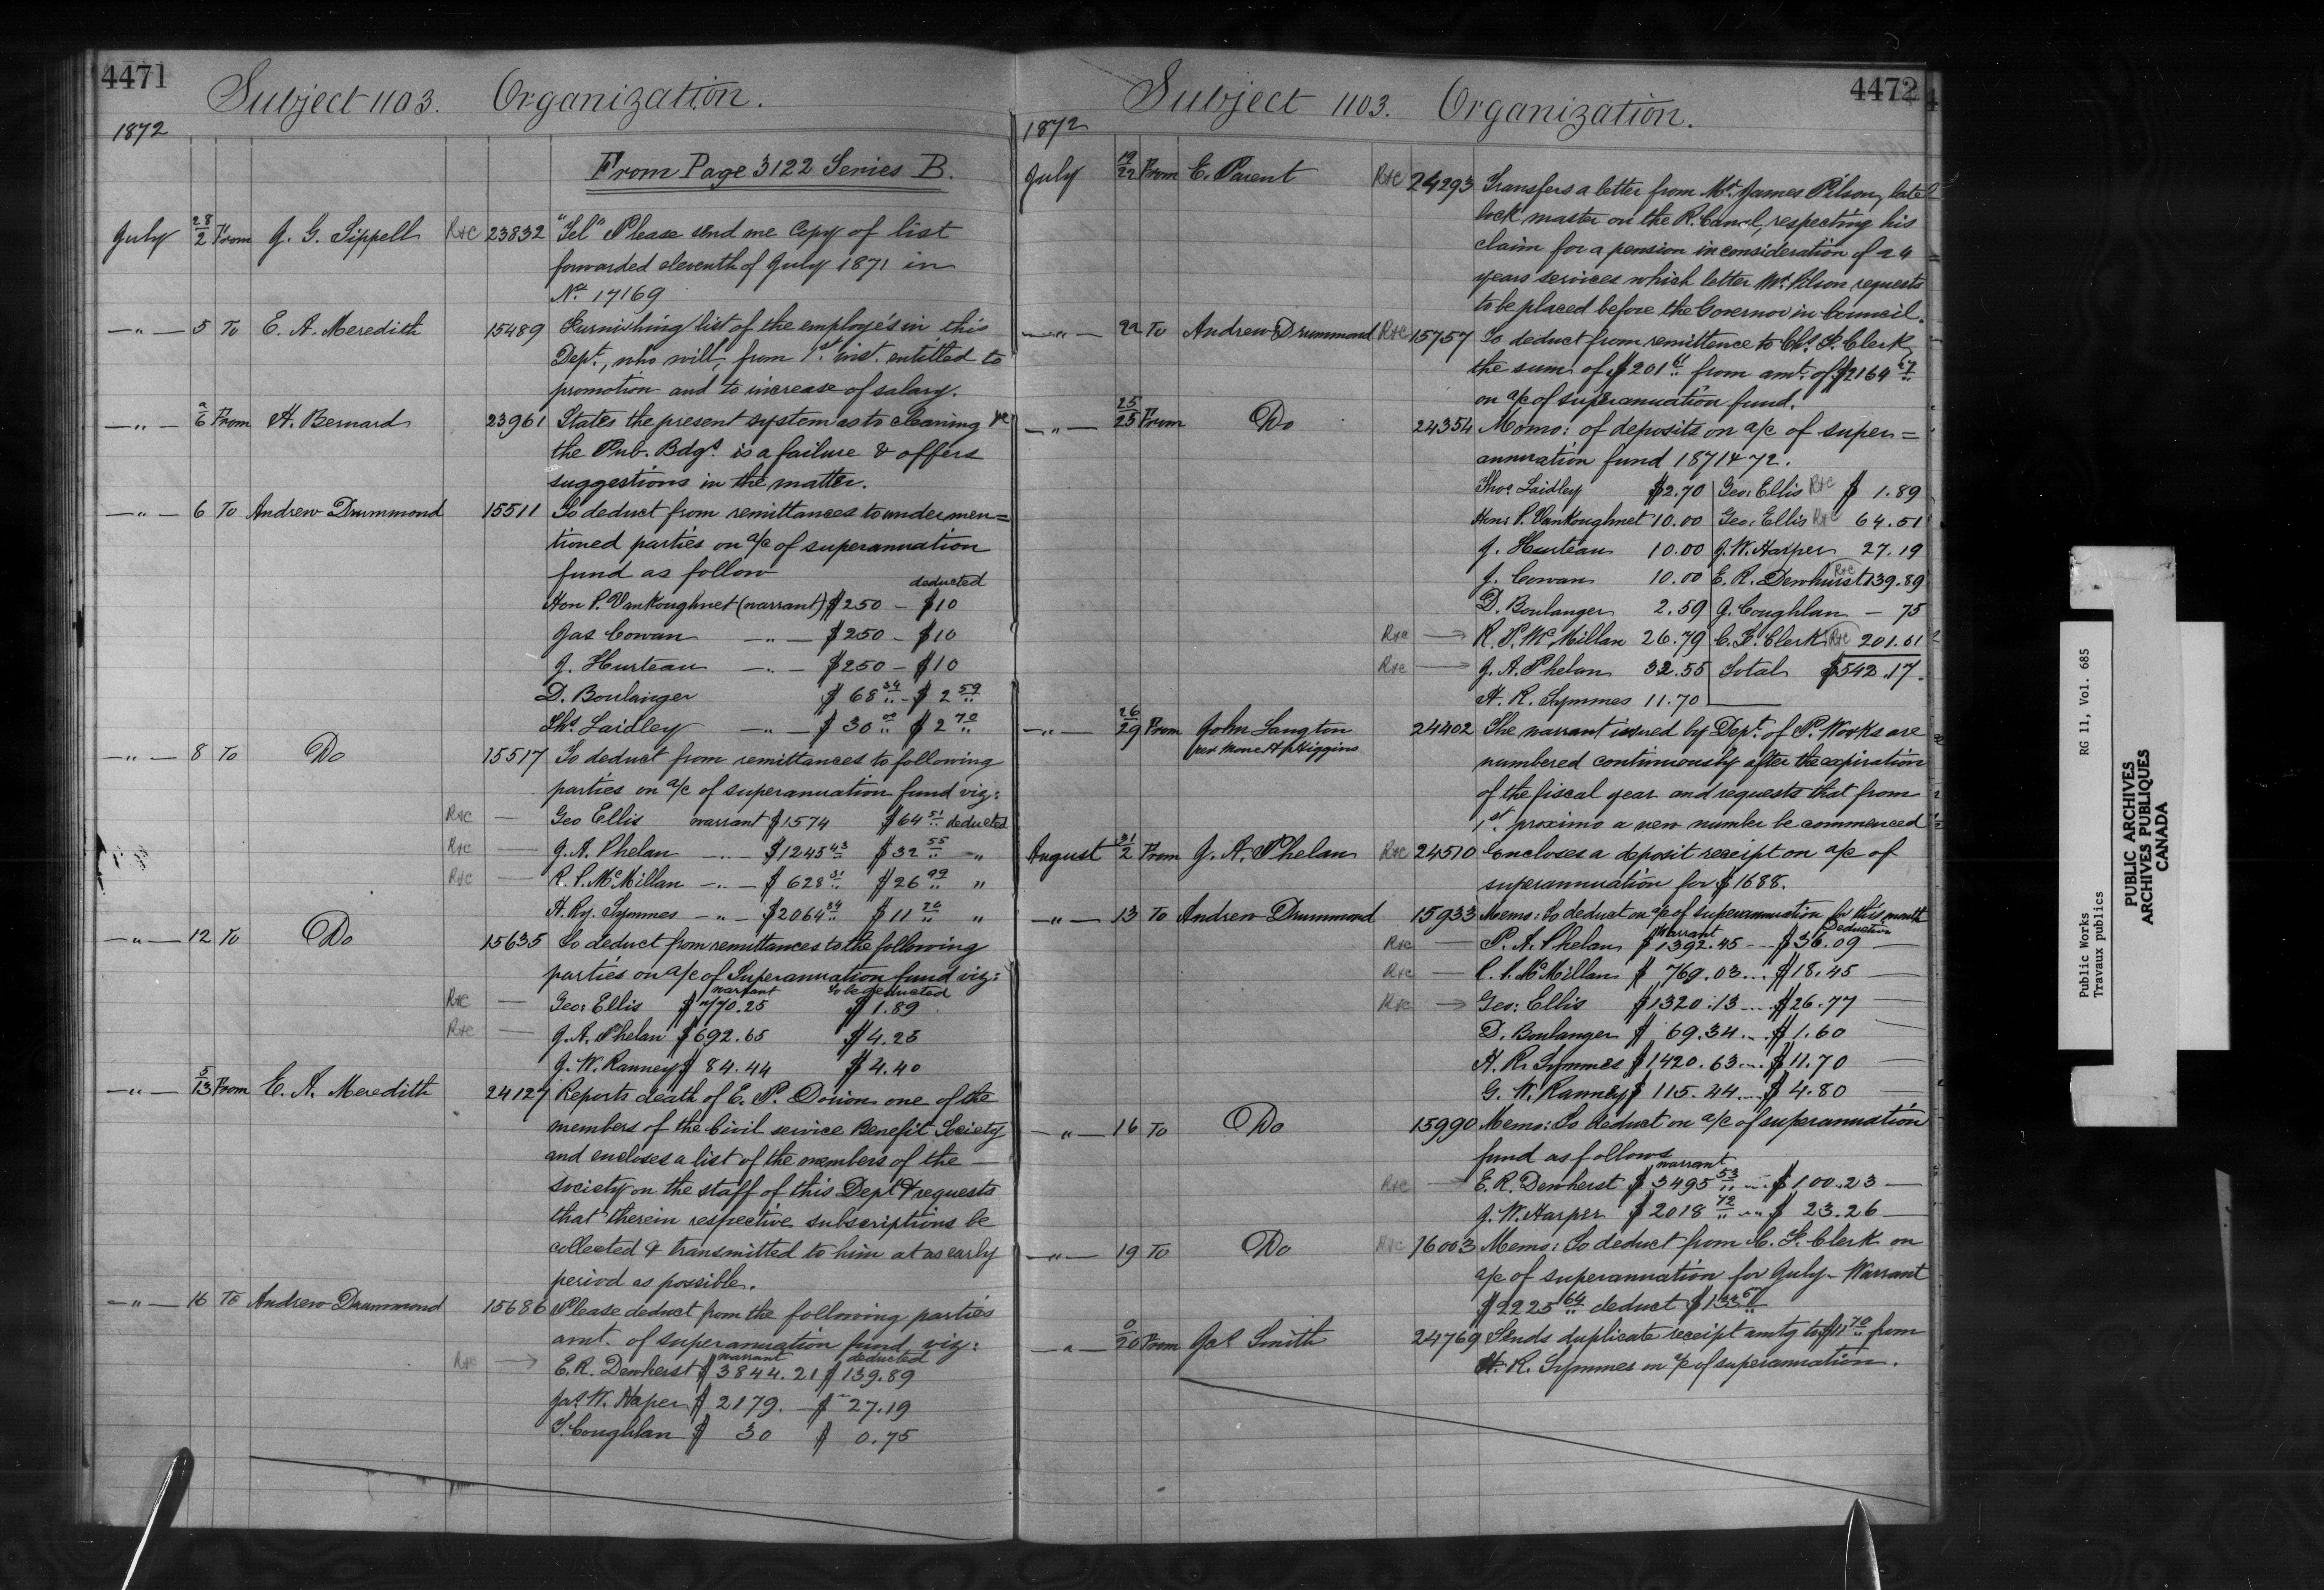 4471
Subject 1103. Organization.
1872
From Page 3122 Series B.
July 28/2 From J. G. Sippell R&c 23832 "Tel" Please send me Copy of list
forwarded eleventh of July 1871 in
No. 17169
—"— 5 To E. A. Meredith 15489 Furnishing list of the employés in this
Dept., who will, from 1st inst. entitled to
promotion and to increase of salary.
—"— 2/6 From H. Bernard 23961 States the present system as to cleaning &c
the Pub. Bdgs. is a failure & offers
suggestions in the matter.
—"— 6 To Andrew Drummond 15511 To deduct from remittances to undermen=
tioned parties on a/c of superannuation
fund as follow
deducted
Hon P. VanKoughnet (warrant) $250 — $10
Jas Cowan —"— $250 — $10
J. Hurteau —"— $250 — $10
D. Boulanger $68 34 — $2 59
Ths. Laidley —"— $30 00 $2 70
—"— 8 To Do 15517 To deduct from remittances to following
parties on a/c of superannuation fund viz:
R&c — Geo Ellis warrant $1574 $64 51 deducted
R&c — J. A. Phelan —"— $1245 43 $32 55 "
R&c — R. P. McMillan —"— $628 31 $26 99 "
H. Ry. Symmes —"— $2064 84 $11 70 "
—"— 12 To Do 15635 To deduct from remittances to the following
parties on a/c of Superannuation fund viz:
warrant To be deducted
R&c — Geo: Ellis $770.25 $1.89
R&c — J. A. Phelan $692.65 $4.25
J. W. Ranney $84.44 $4.40
—"— 5/13 From E. A. Meredith 24127 Reports death of E. P. Dorion one of the
members of the Civil service Benefit Society
and encloses a list of the members of the —
society on the staff of this Dept & requests
that therein respective subscriptions be
collected & transmitted to him at as early
period as possible.
—"— 16 To Andrew Drummond 15686 Please deduct from the following parties
amt. of superannuation fund viz:
warrant deducted
R&c → E. R. Dewherst $3844.21 $139.89
Jas. W. Haper $2179. — $27.19
T. Coughlan $30 $0.75
4472
Subject 1103. Organization.
1872
July 19/22 From E. Parent R&c 24293 Transfers a letter from Mr. James Pilson, late
lock master on the R. Canal, respecting his
claim for a pension in consideration of 24
years services which letter Mr. Pilson requests
to be placed before the Governor in Council.
—"— 22 To Andrew Drummond R&c 15757 To deduct from remittence to Chs. F. Clerk
the sum of $201 61 from amt. of $2164 67
on a/c of superannuation fund.
—"— 25/25 From Do 24354 Momo: of deposits on a/c of super=
annuation fund 1871 & 72.
Thos Laidley $2.70 Geo: Ellis R&c $1.89
Hon: P. VanKoughnet 10.00 Geo: Ellis R&c 64.51
J. Hurteau 10.00 J. W. Harper 27.19
J. Cowan 10.00 E. R. Dewhurst R&c 139.89
D. Boulanger 2.59 J. Coughlan — 75
R&c → R. P. McMillan 26.79 C. F. Clerk R&c 201.61
R&c → J. A. Phelan 32.55 Total $542.17.
H. R. Symmes 11.70
—"— 26/29 From John Langton 24402 The warrant issued by Dept. of P. Works are
numbered continuously after the expiration
of the fiscal year and requests that from
1st. proximo a new number be commenced
August 31/2 From J. A. Phelan R&c 24510 Encloses a deposit receipt on a/c of
superannuation for $1688.
—"— 13 To Andrew Drummond 15933 Memo: To deduct on a/c of superannuation for this month
Warrant Deduction
R&c — P. A. Phelan $1392.45 ... $36.09 —
R&c — R. P. McMillan $769.03 ... $18.45 —
R&c → Geo: Ellis $1320.13 ... $26.77 —
D. Boulanger $69.34 ... $1.60
H. R. Symmes $1420.63 ... $11.70 —
G. W. Ranney $115.44 ... $4.80 —
—"— 16 To Do 15990 Memo: To deduct on a/c of superannuation
fund as follows
warrant
R&c → E. R. Dewherst $3495 53 ... $100.23 —
J. W. Harper $2018 72 ... $23.26 —
—"— 19 To Do R&c 16003 Memo: To deduct from C. F. Clerk on
a/c of superannuation for July — Warrant
$2225 64 deduct $133 67
—"— 20 From Jas Smith 24769 Sends duplicate receipt amtg to $11 70 from
H. R. Symmes on a/c of superannuation.
Public Works RG 11, Vol. 685
Travaux publics
PUBLIC ARCHIVES
ARCHIVES PUBLIQUES
CANADA